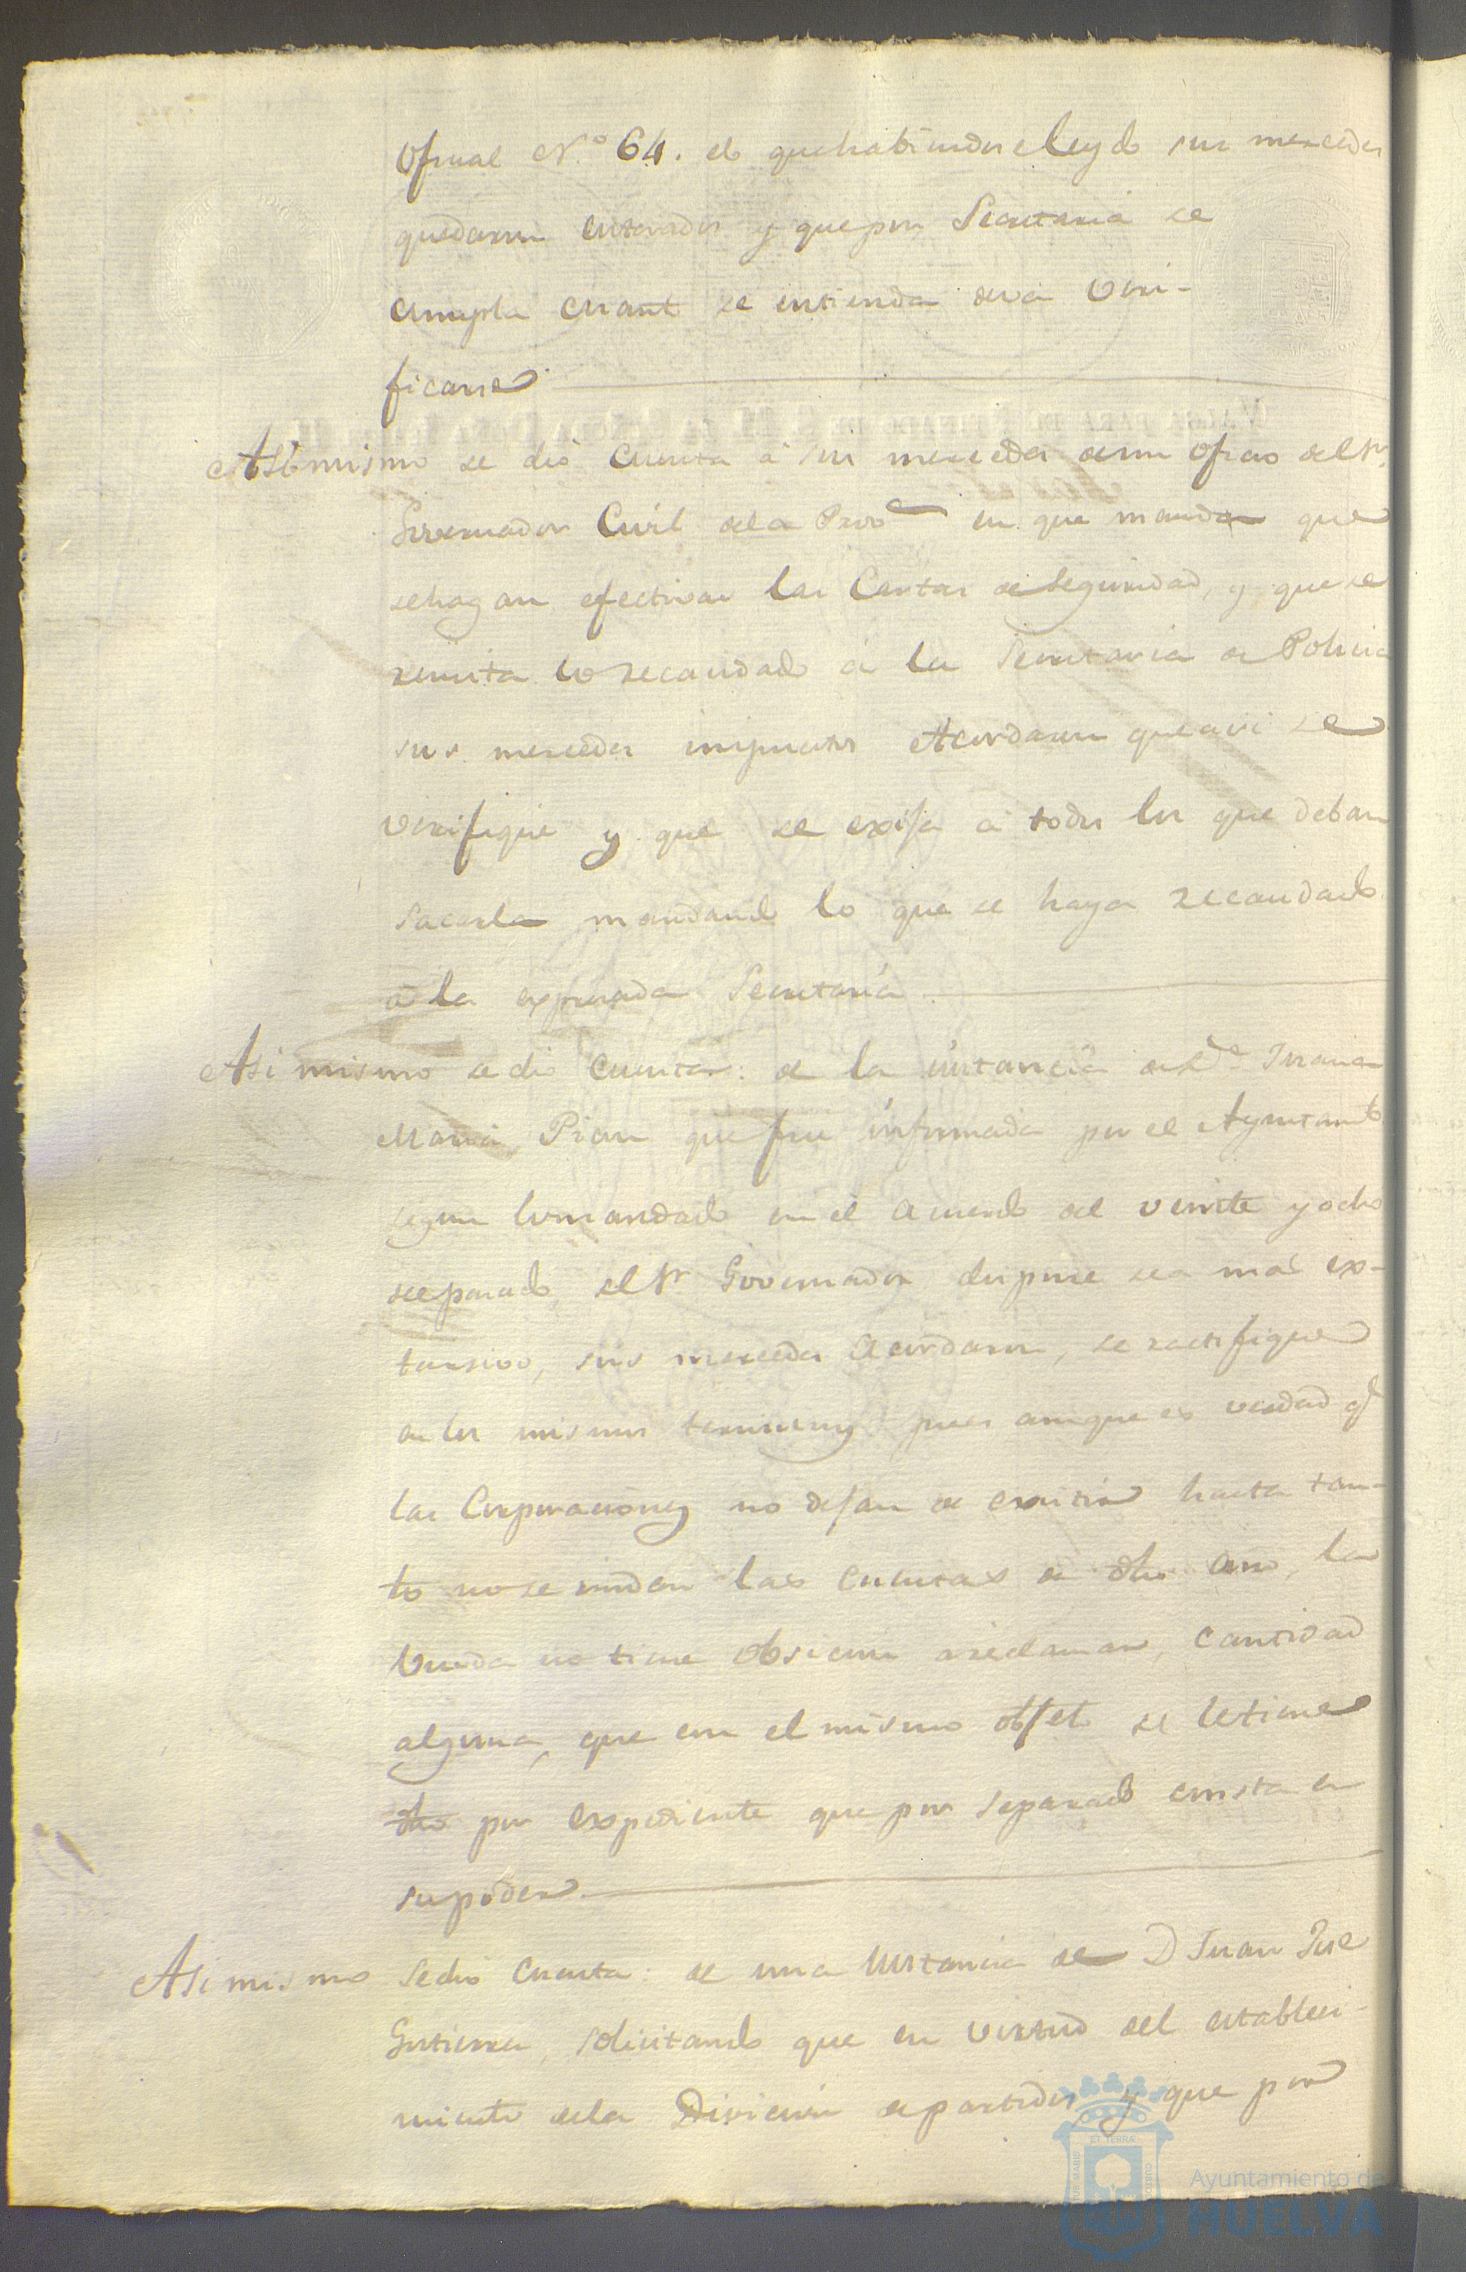 Oficial N.º 64. el que habiendose leydo sus mercedes
quedaron enterados y que por Secretaria se
cumpla cuanto se entienda deva veri-
ficarse
Asi mismo se dió cuenta á sus mercedes de un oficio del Sr.
Governador Civil de la Prov.ª en que manda que
se hagan efectivas las Cartas de Seguridad, y que se
remita lo recaudado á la Secretaria de Policia
sus mercedes impuestos Acordaron que asi se
verifique y que se exija á todos los que deban
sacarla mandando lo que se haya recaudado
á la expresada Secretaría
Asi mismo se dio cuenta de la instancia de D.ª Juana
Maria Pison que fue informada por el Ayuntam.to
segun lo mandado en el acuerdo del veinte y ocho
del pasado, el Sr Governador dispone sea mas ex-
tensivo, sus mercedes acordaron, se ractifique
en los mismos terminos pues aunque es verdad q.e
las Corporaciones no dejan de existir hasta tan-
to no se rinden las cuentas de dho año, la
viuda no tiene obsion a reclamar, cantidad
alguna, que con el mismo objeto se le tiene
dho por expediente que por separado consta en
su poder.
Asi mismo se dio cuenta de una instancia de D Juan José
Gutierrez, solicitando que en virtud del estableci-
miento de la Division de partidos y que por
Ayuntamiento de
HUELVA